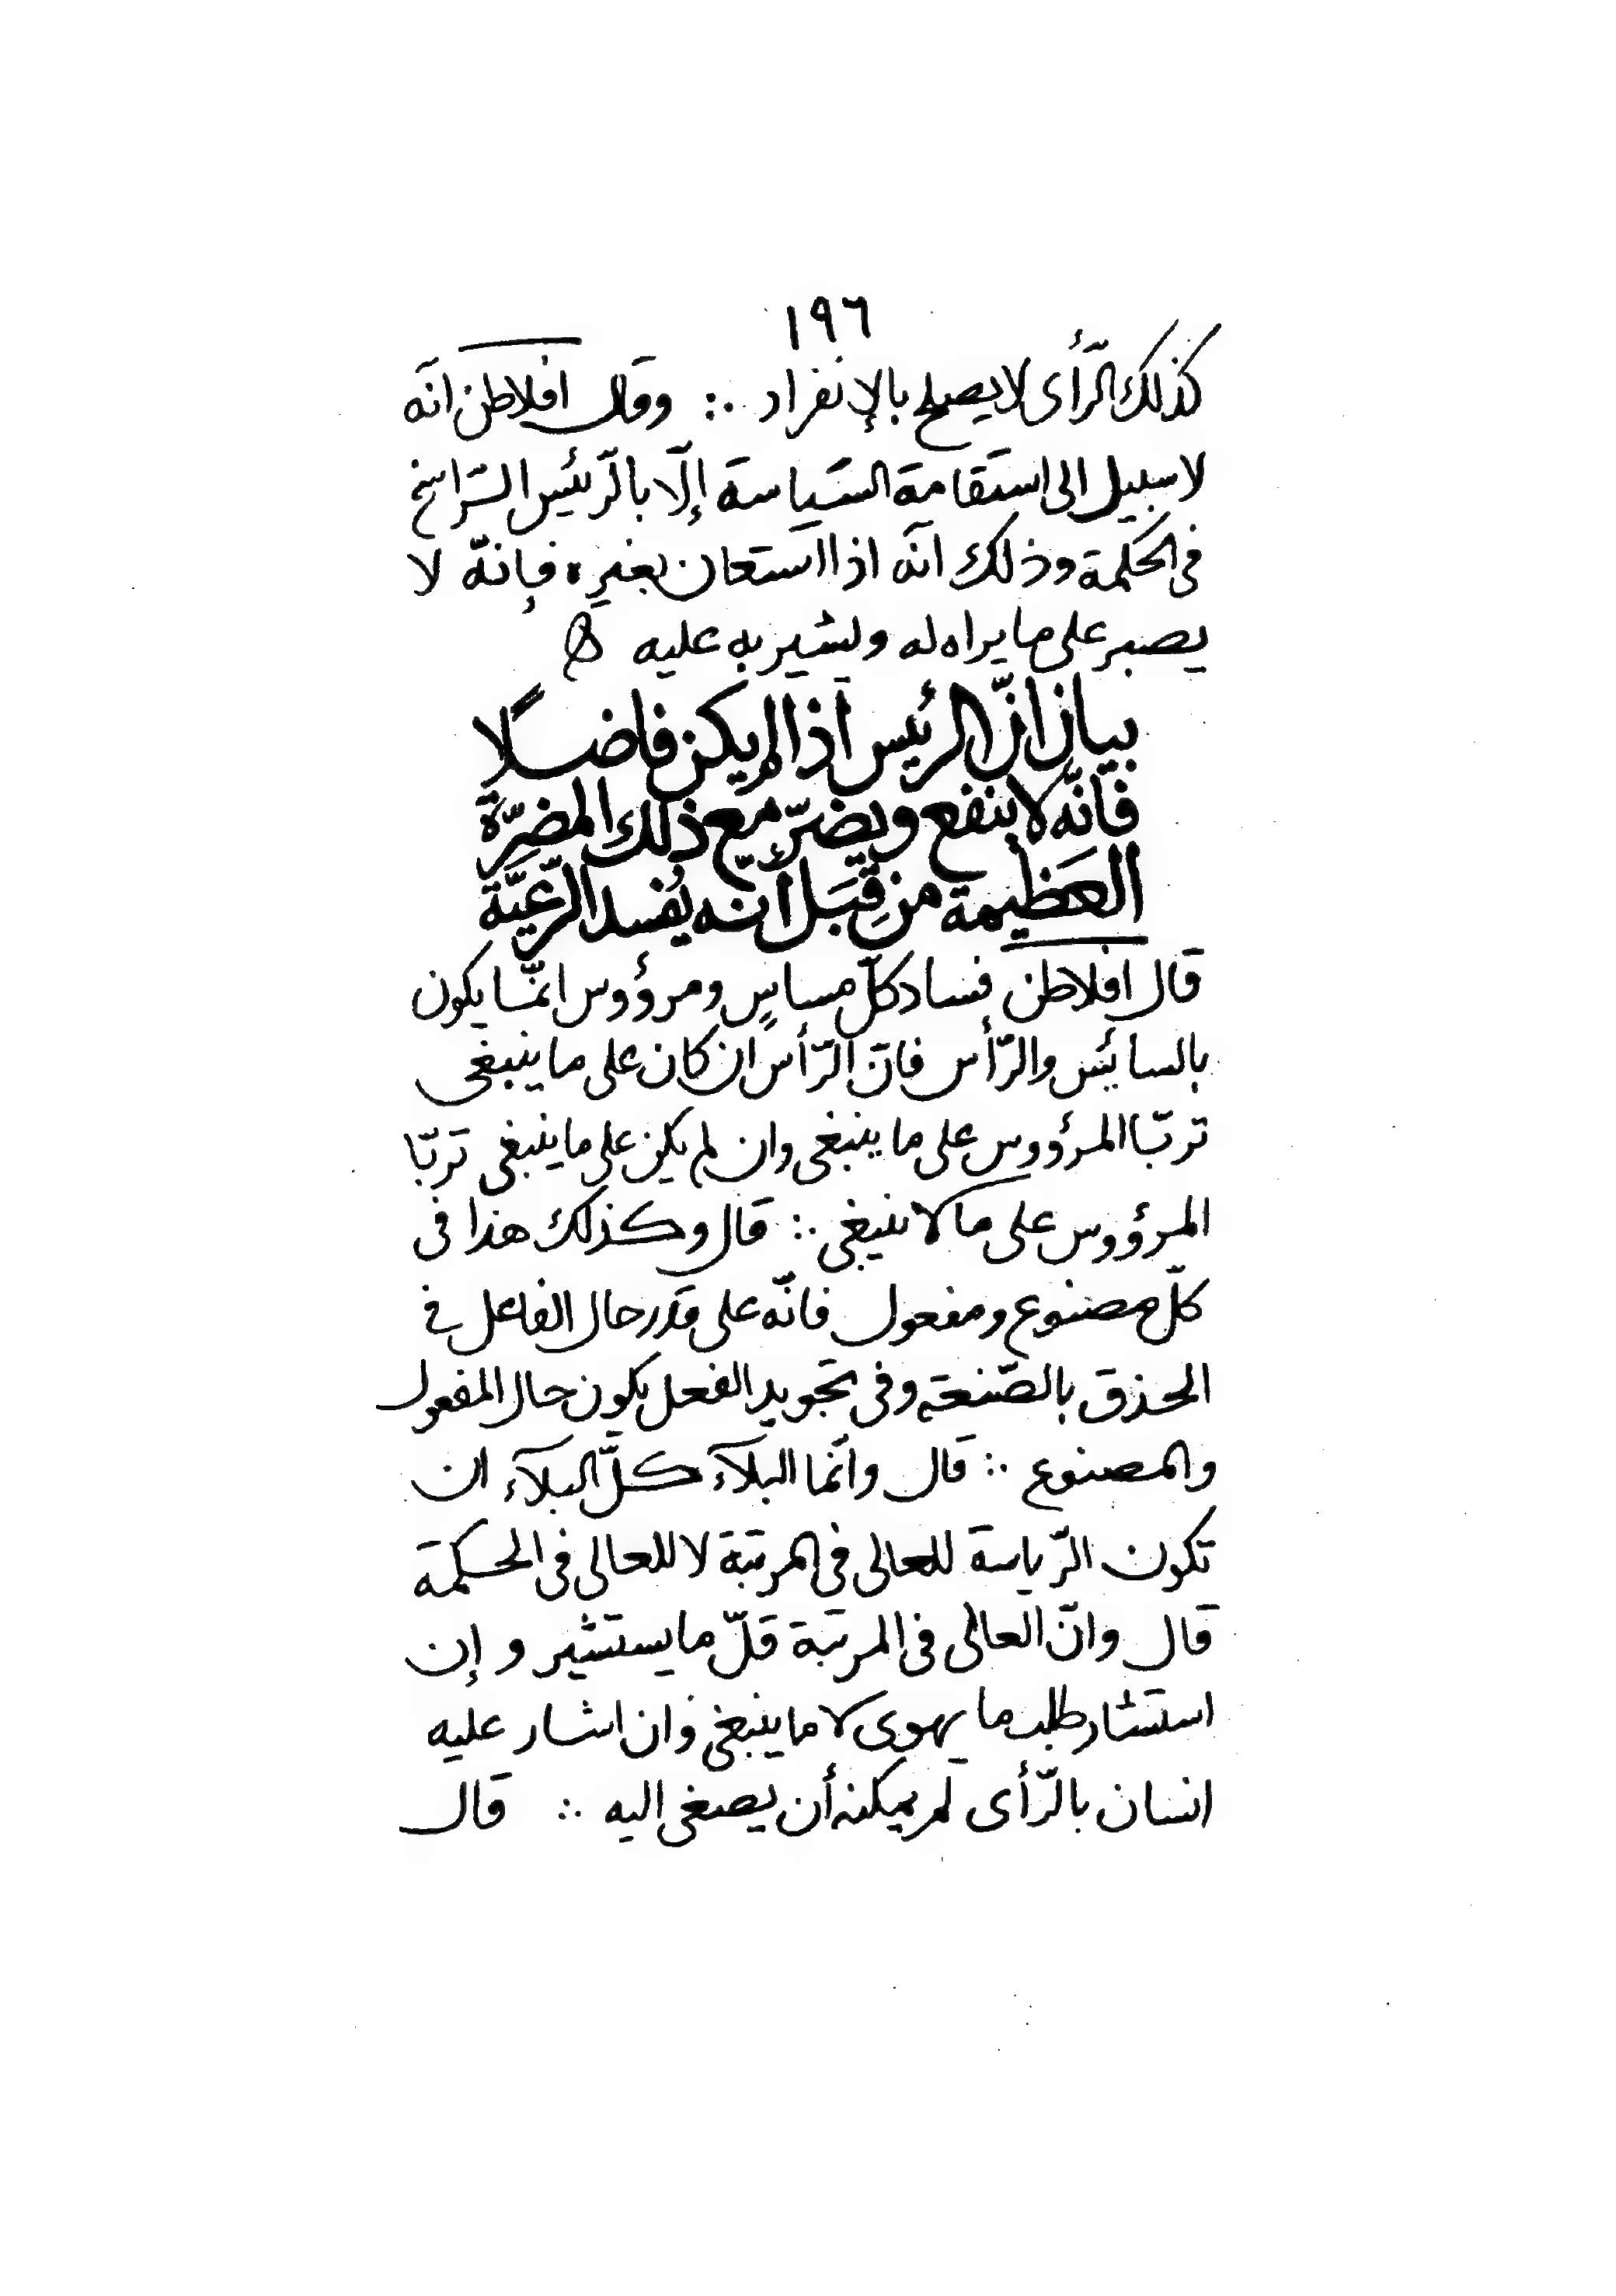 ١٩٦
كذلك الرّأى لا يصلح بالإنفراد ∴ وقال افلاطن انّه
لا سبيل الى استقامة السّياسة إلّا بالرّئيس الرّاسخ
فى الحكمة وذلك انّه اذا استعان بغيره فإنّه لا
يصبر على ما يراه له ويشير به عليه ه
بيان انّ الرئيس اذا لم يكن فاضلًا
فانّه لا ينفع ويضرّ مع ذلك المضرّة
العَظيمة من قِبَل أنّه يُفسد الرّعيّة
قال افلاطن فساد كلّ مساسٍ ومرؤوس انّما يكون
بالسائس والرّأس فانّ الرّأس ان كان على ما ينبغى
تربّا المرؤوس على ما ينبغى وان لم يكن على ما ينبغى تربّا
المرؤوس على ما لا ينبغى ∴ قال وكذلك هذا فى
كلّ مصنوع ومفعول فانّه على قدر حال الفاعل فى
الحذق بالصّنعة وفى تجويد الفعل يكون حال المفعول
والمصنوع ∴ قال وانّما البلآء كلّ البلآء ان
تكون الرّياسة للعالى فى المرتبة لا للعالى فى الحكمة
قال وانّ العالى فى المرتبة قلّ ما يستشير وإن
استشار طلب ما يهوى لا ما ينبغى وان اشار عليه
انسان بالرّأى لم يمكنه أن يصغى اليه ∴ قال